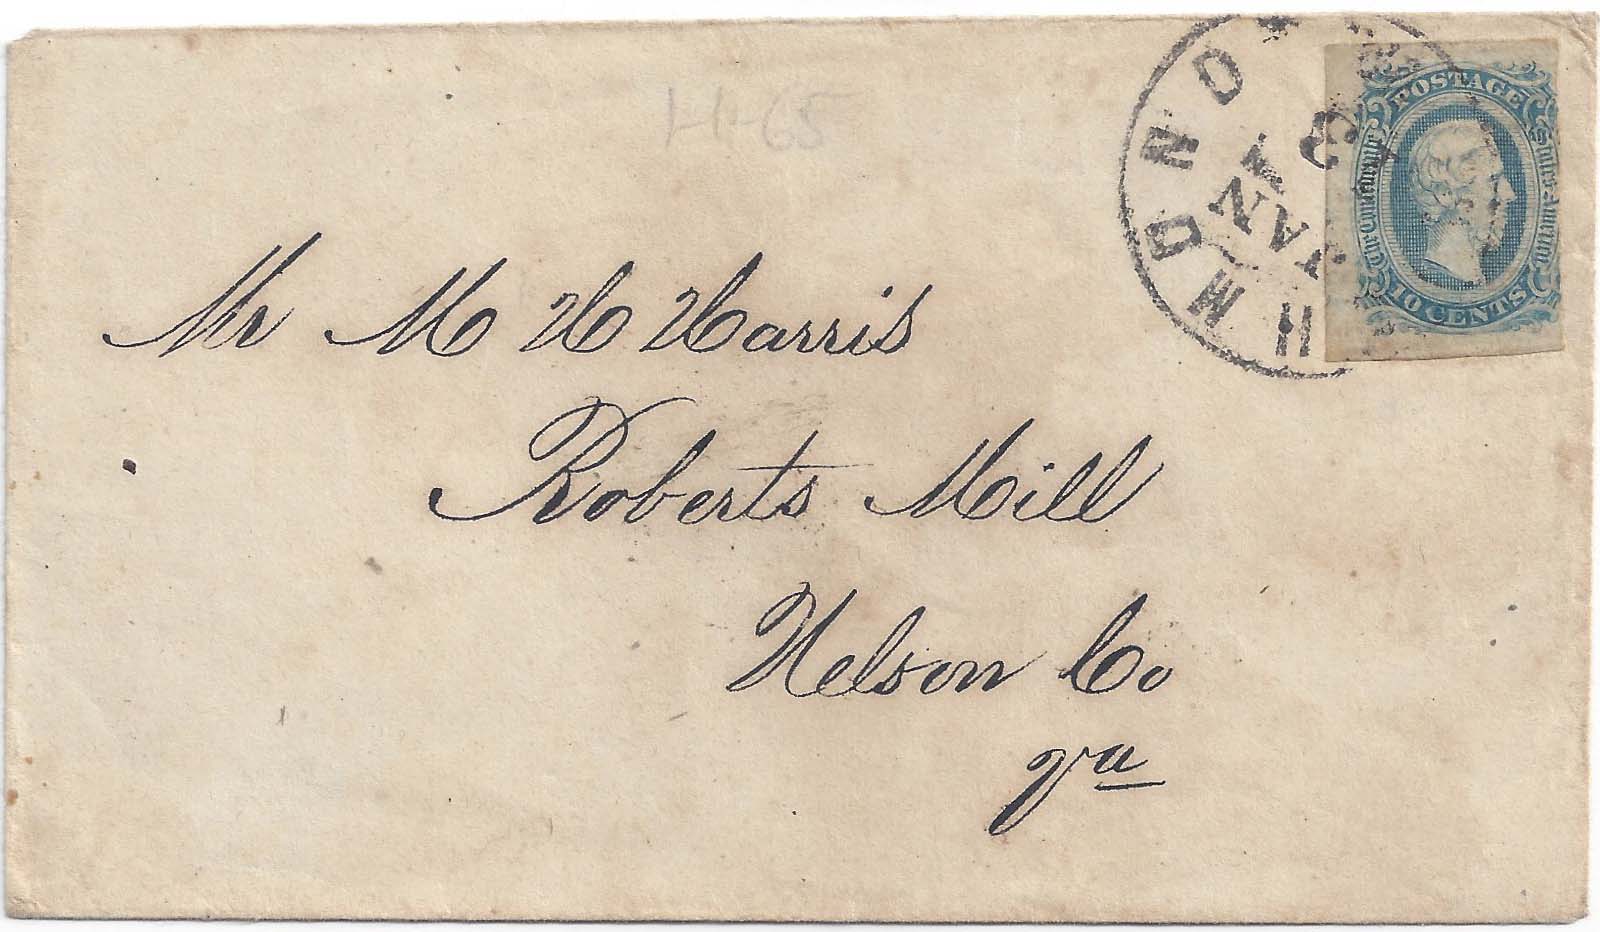 1-1-65
RICHMOND VA
JAN
1
POSTAGE
The Confederate States of America
10 CENTS
Mr M H Harris
Roberts Mill
Nelson Co
Va